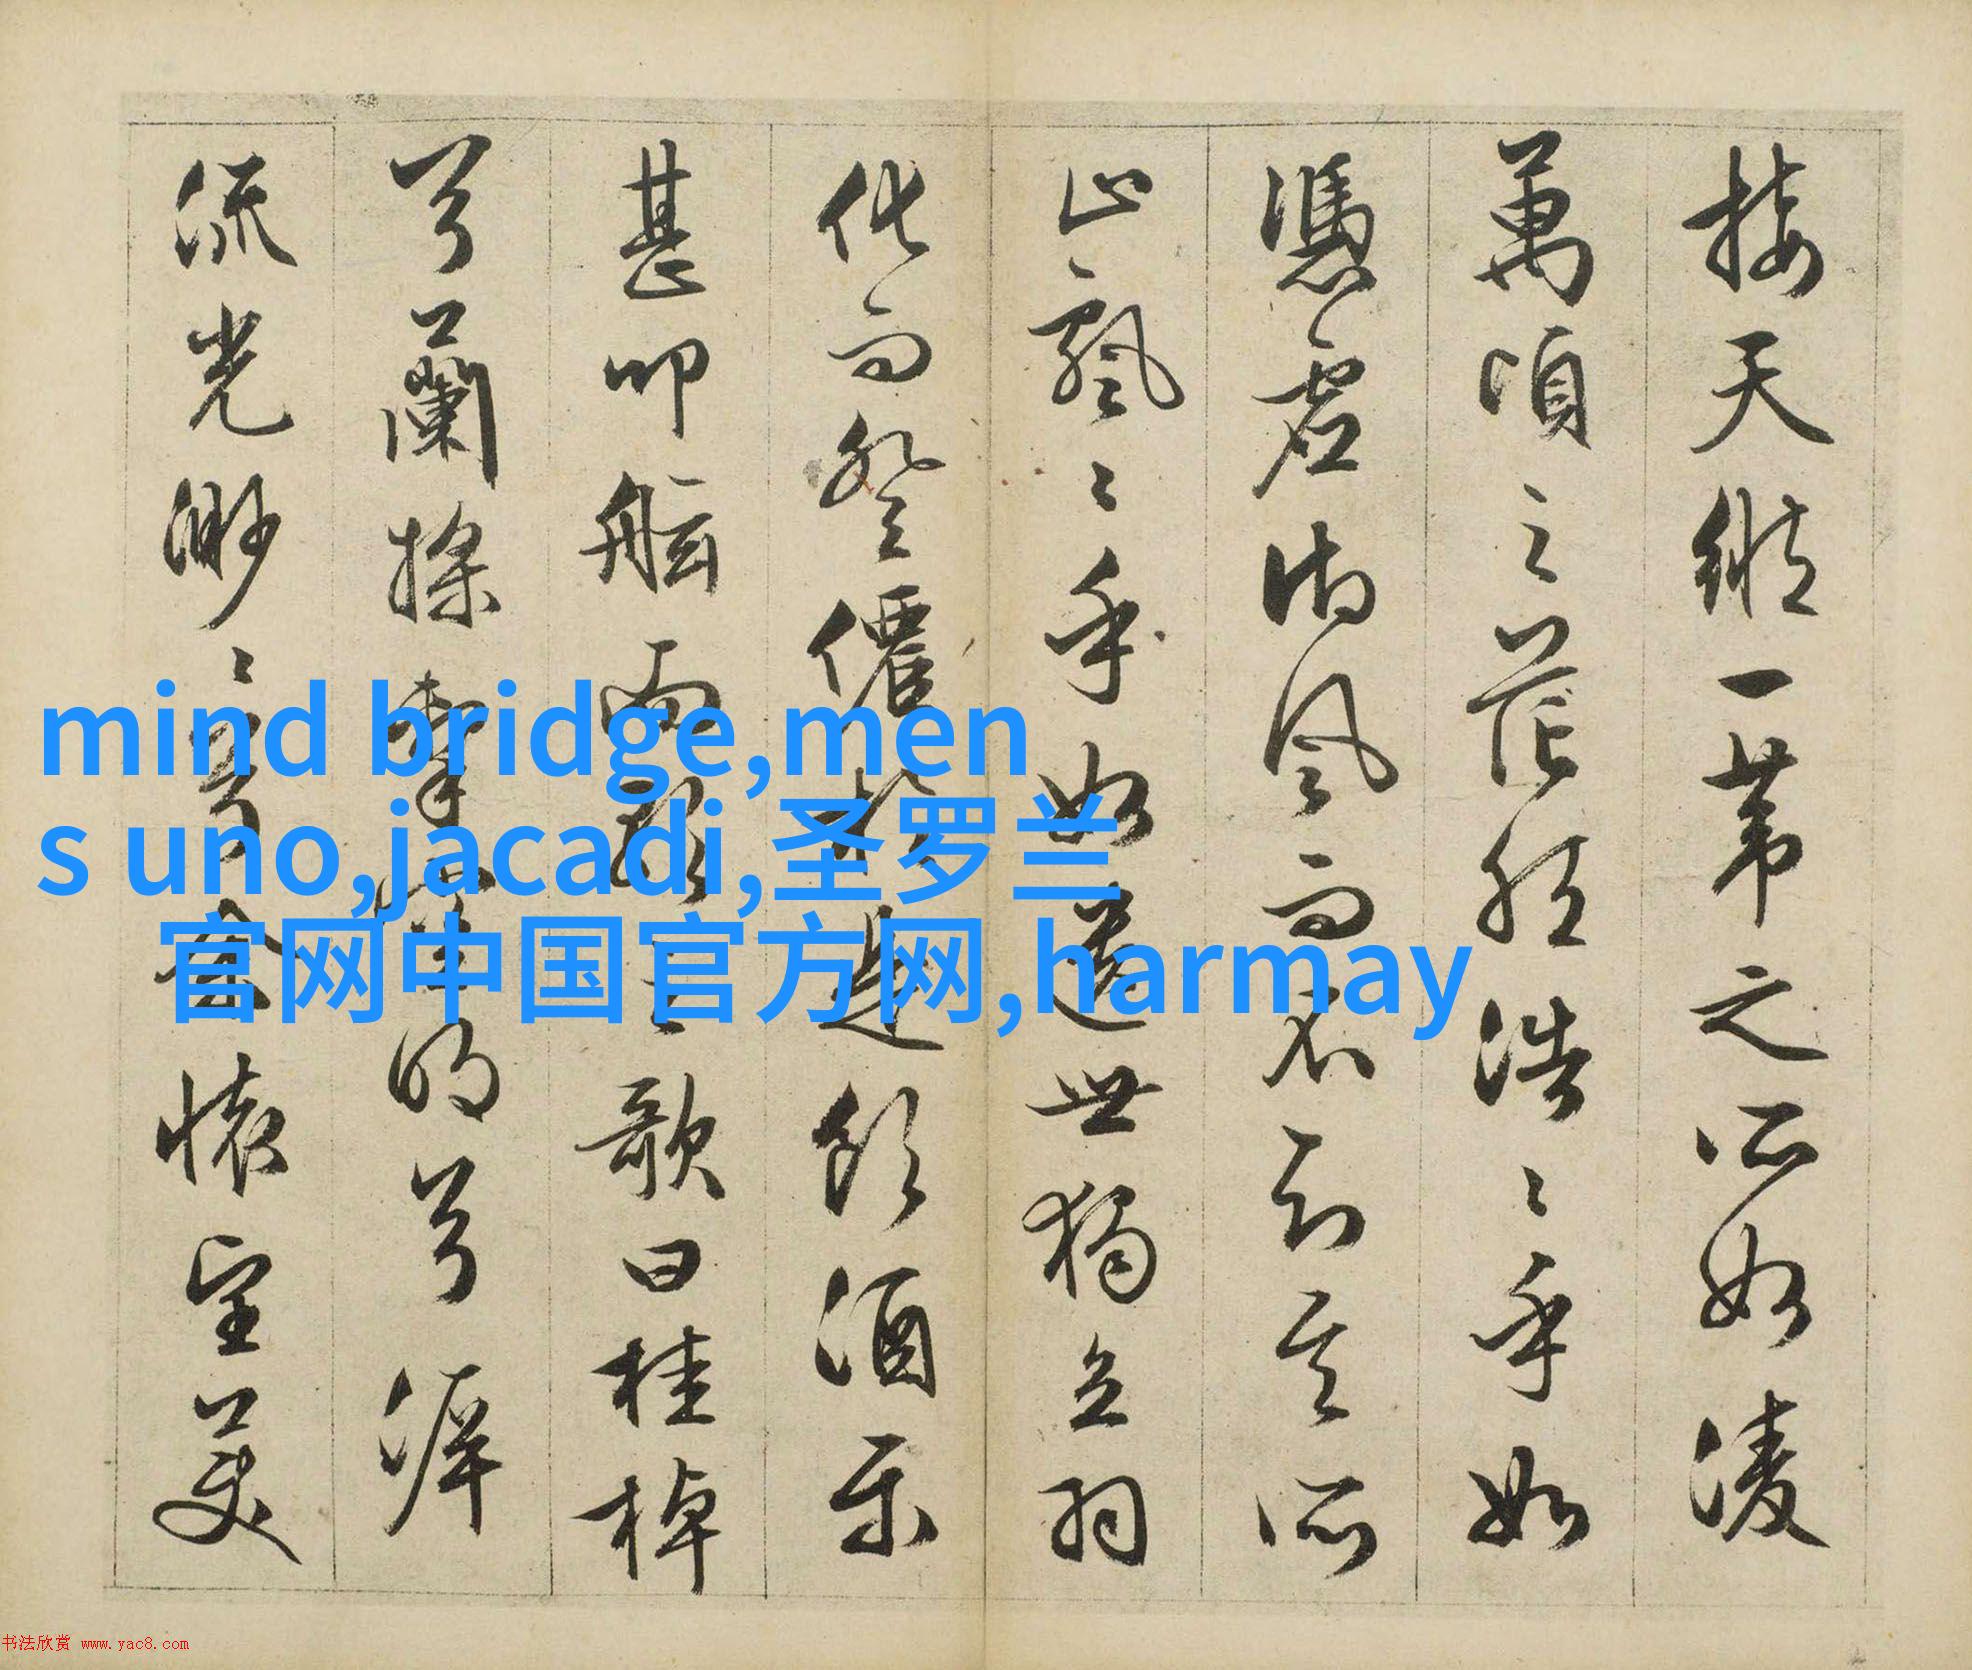 接天縱一葦之所如凌
萬頃之茫然浩〻乎如
憑虛御風而不知其所
止飄〻乎如遺世獨立羽
化而登僊於是飲酒樂
甚叩舷而歌之歌曰桂棹
兮蘭槳擊空明兮泝
流光渺〻兮余懷望美
mind bridge,men
s uno,jacadi,圣罗兰
官网中国官方网,harmay
书法欣赏 www.yac8.com